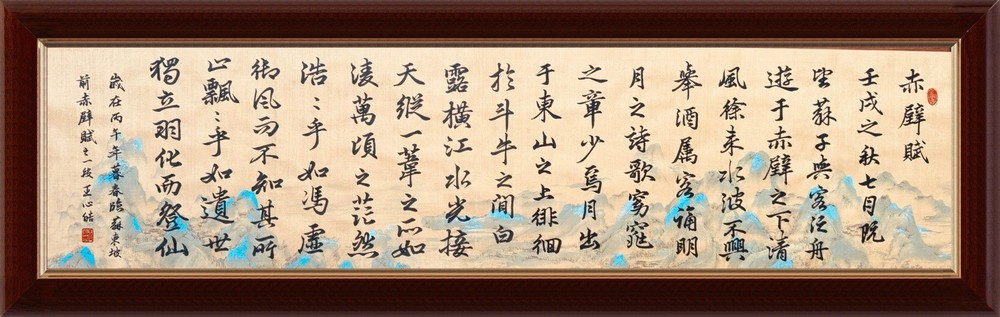 赤壁賦
壬戌之秋七月既
望蘇子與客泛舟
遊于赤壁之下清
風徐来水波不興
舉酒属客誦明
月之詩歌窈窕
之章少焉月出
于東山之上徘徊
於斗牛之間白
露横江水光接
天縱一葦之所如
凌萬頃之茫然
浩〻乎如馮虛
御风而不知其所
止飄〻乎如遺世
獨立羽化而登仙
歲在丙午年暮春臨蘇東坡
前赤壁賦之一段王心